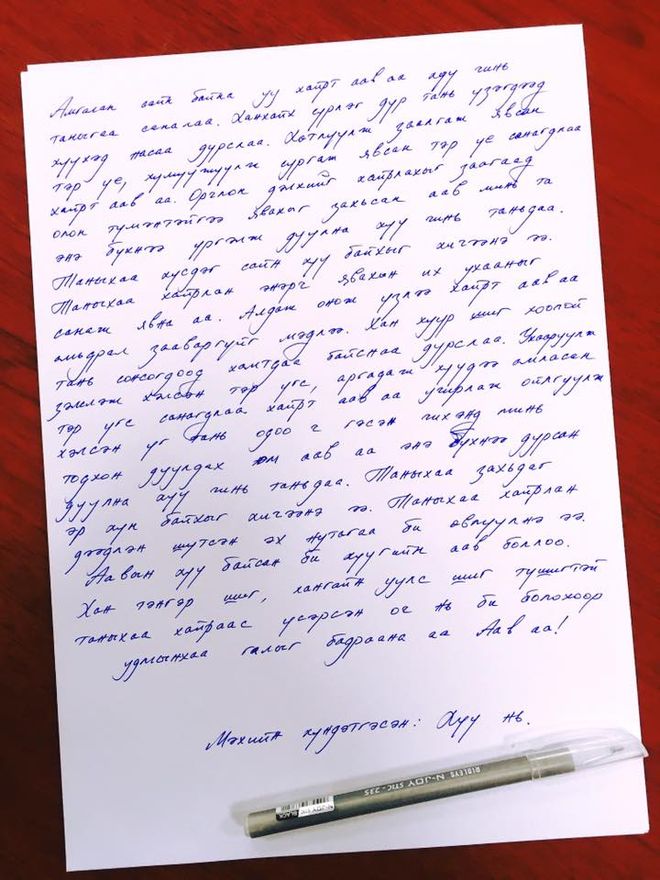 Амгалан сайн байна уу хайрт аав аа хүү чинь
таныгаа саналаа. Ханхайх сүрлэг дүр тань үзэгдээд
хүүхэд насаа дурслаа. Хөтлүүлж заалгаж явсан
тэр үе, хүмүүжүүлж сургаж явсан тэр үе санагдлаа
хайрт аав аа. Орчлон дэлхийг хайрлахыг заагаад
олон түмэнтэйгээ явахыг захьсан аав минь та
энэ бүхнээ үргэлж дуулна хүү чинь таньдаа.
Таныхаа хүсдэг сайн хүү байхыг хичээнэ ээ.
Таныхаа хайрлан энэрч явахын их ухааныг
санаж явна аа. Алдаж онож үзлээ хайрт аав аа
амьдрал зааваргүйг мэдлээ. Хан хуур шиг хоолой
тань сонсогдоод хамтдаа байснаа дурслаа. Ухааруулж
зэмлэж хэлсэн тэр үгс, аргадаж хүүдээ амласан
тэр үгс санагдлаа хайрт аав аа учирлаж ойлгуулж
хэлсэн үг тань одоо ч гэсэн чихэнд минь
тодхон дуулдах юм аав аа энэ бүхнээ дурсан
дуулна хүү чинь таньдаа. Таныхаа захьдаг
эр хүн байхыг хичээнэ ээ. Таныхаа хайрлан
дээдлэн шүтсэн эх нутагаа би өвлүүлнэ ээ.
Аавын хүү байсан би хүүгийн аав боллоо.
Хан тэнгэр шиг, хангайн уулс шиг түшигтэй
таныхаа хайраас үсэрсэн оч нь би болохоор
удмынхаа галыг бадраана аа Аав аа!
Мэхийн хүндэтгэсэн: Хүү нь.
RIDLEYS N-JOY STIC .235
N-JOY STIC BLACK